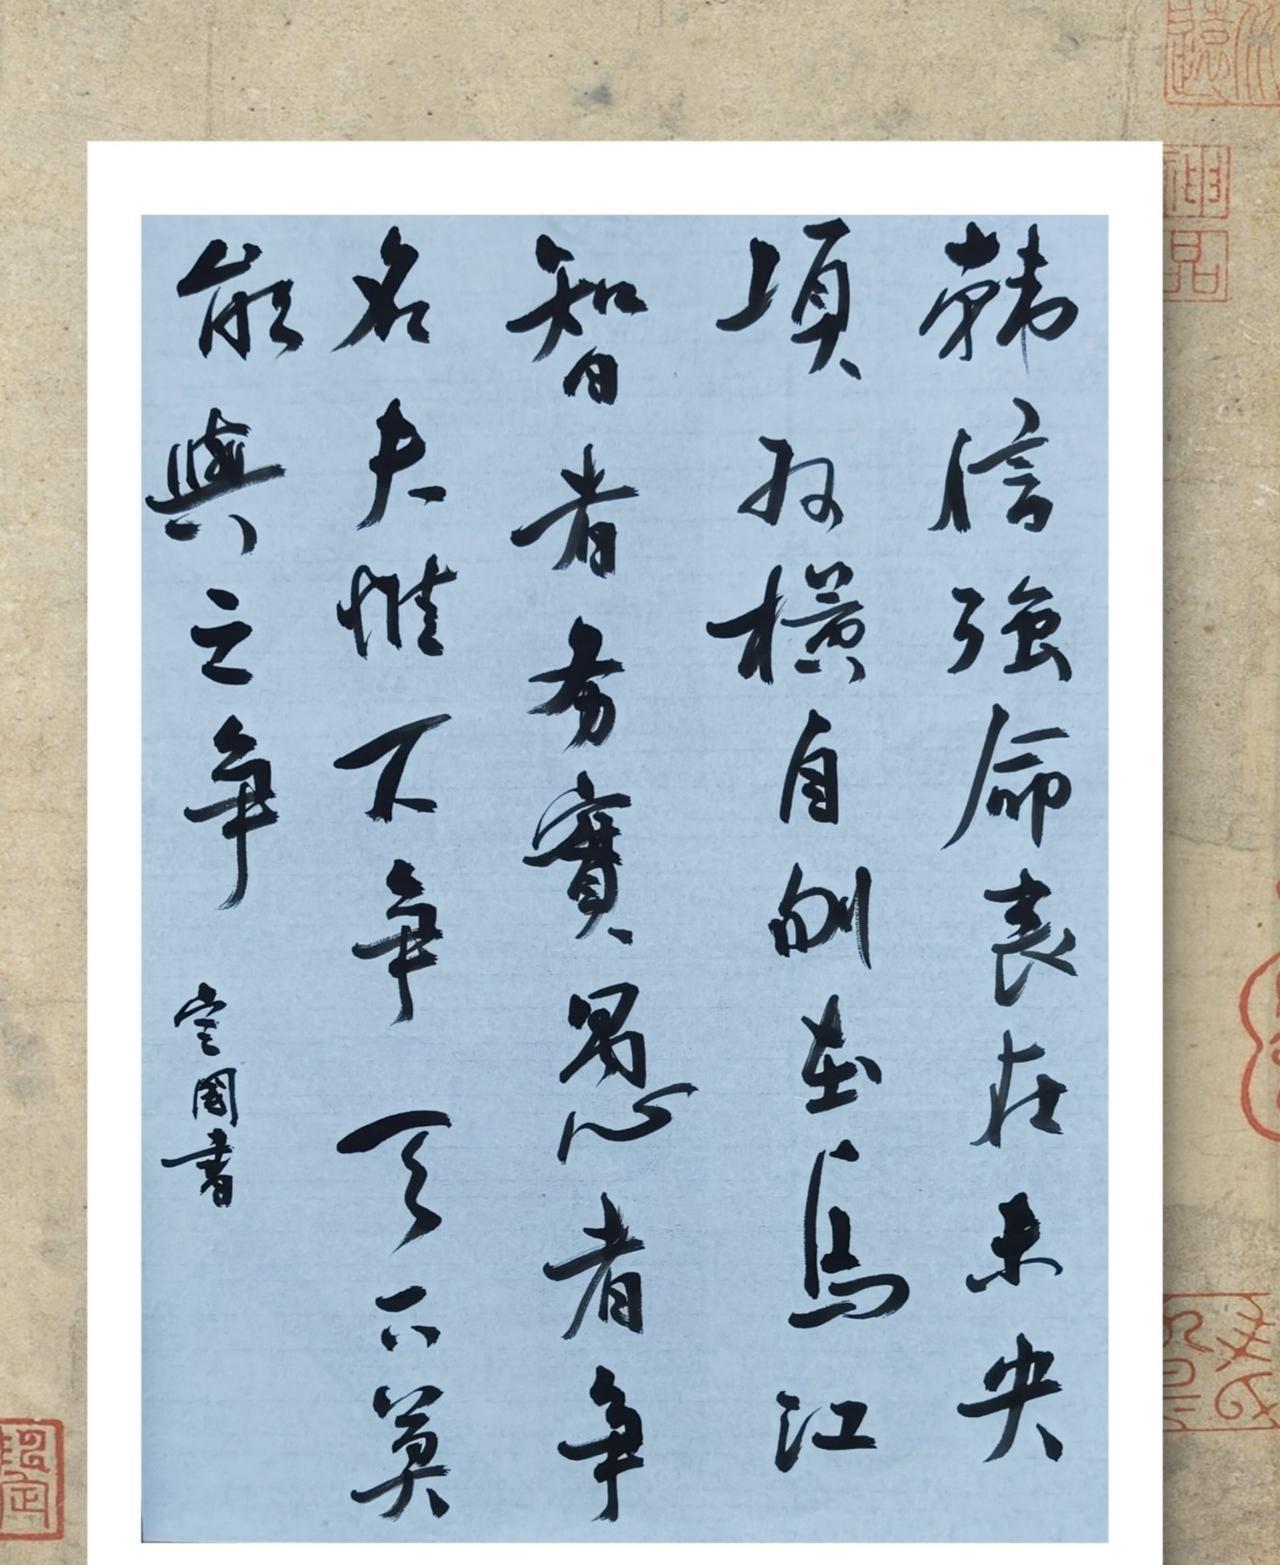 韓信強命喪在未央
項羽橫自刎在烏江
智者務實愚者爭
名夫惟不爭天下莫
能與之爭
國書